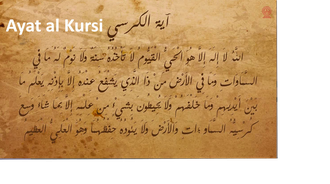 Ayat al Kursi
آية الكرسي
اللهُ لا إله إلا هو الحيُّ القيُّوم لا تأخذُهُ سنةٌ ولا نومٌ لهُ ما في
السماوات وما في الأرض من ذا الذي يشفعُ عندهُ إلا بإذنه يعلمُ ما
بين أيديهم وما خلفهم ولا يُحيطون بشيءٍ من علمه إلا بما شاء وسع
كرسيُّه السماوات والأرض ولا يئوده حفظهما وهو العليُّ العظيم